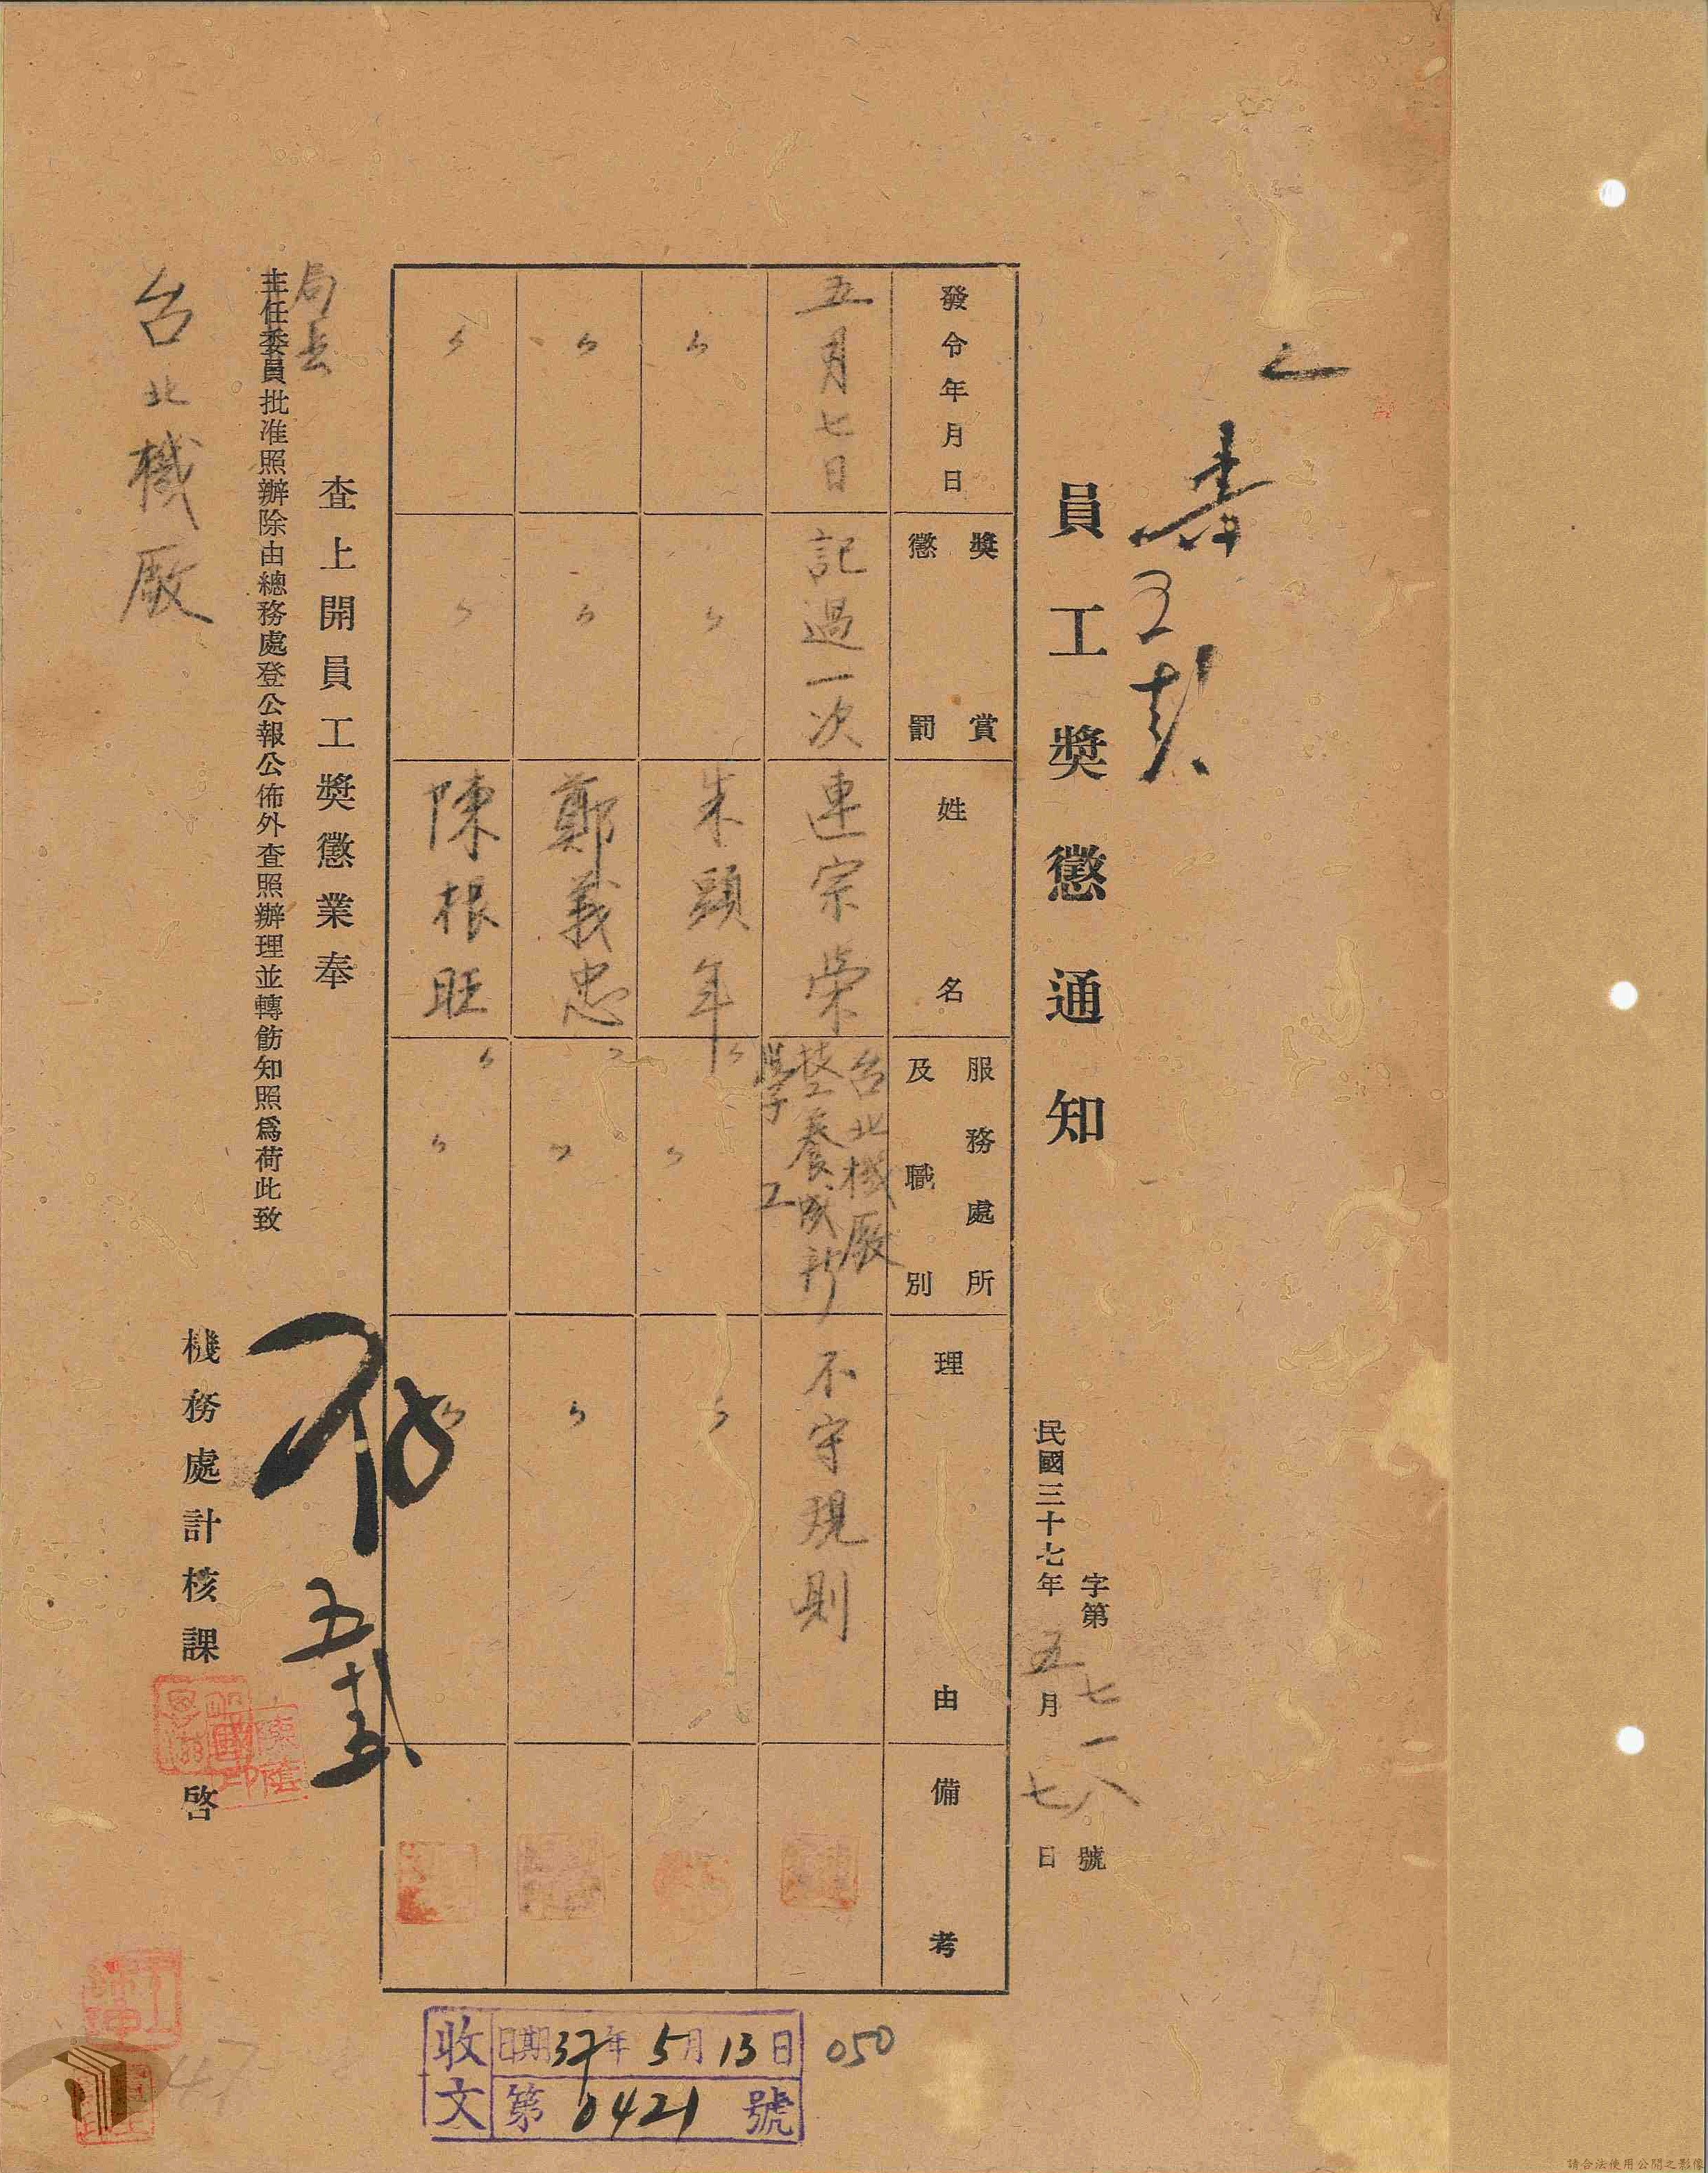 員工獎懲通知
字第七一八號
民國三十七年五月七日
發令年月日
獎賞
懲罰
姓名
服務處所
及職別
理由
備考
五月七日
記過一次
連宗榮
台北機廠
技養成所
學工
不守規則
〃
〃
朱頭年
〃
〃
〃
〃
〃
鄭義忠
〃
〃
〃
〃
〃
陳根旺
〃
〃
〃
查上開員工獎懲業奉
局長
主任委員批准照辦除由總務處登公報公佈外查照辦理並轉飭知照為荷此致
台北機廠
機務處計核課啓
收文
日期37年5月13日
第0421號
050
47
請合法使用公開之影像